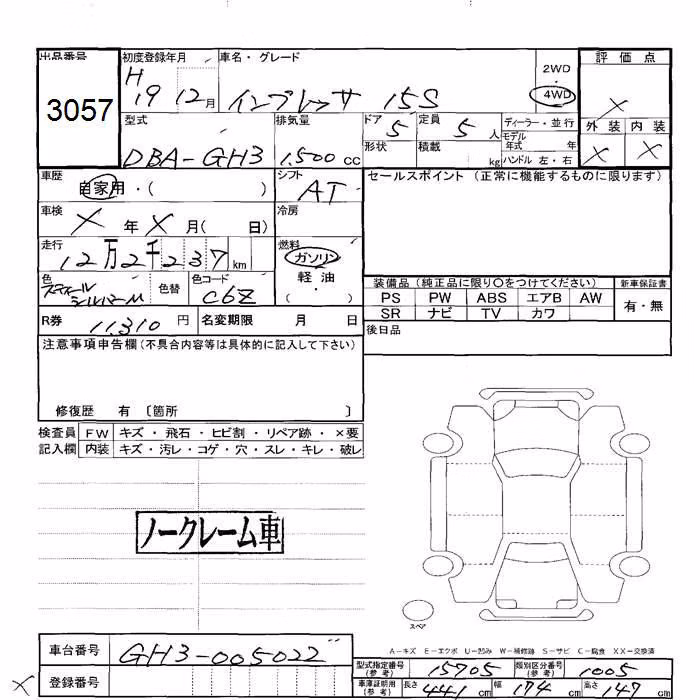 出品番号 初度登録年月 車名・グレード 2WD・4WD 評価点
3057 H19 12月 インプレッサ 15S X
型式 排気量 ドア 定員 ディーラー・並行 外装 内装
DBA-GH3 1,500cc 5 5人 モデル年式 年 X X
形状 積載 kg ハンドル 左・右
車歴 自家用・( ) シフト AT セールスポイント (正常に機能するものに限ります)
車検 X年X月( 日) 冷房
走行 12万2千237km 燃料 ガソリン・軽油・( )
色 シルバーM 色替 色コード C6Z
装備品 (純正品に限り○をつけてください) 新車保証書
PS PW ABS エアB AW 有・無
SR ナビ TV カワ
R券 11,310円 名変期限 月 日
後日品
注意事項申告欄(不具合内容等は具体的に記入して下さい)
修復歴 有 〔箇所 〕
検査員 FW キズ・飛石・ヒビ割・リペア跡・×要
記入欄 内装 キズ・汚レ・コゲ・穴・スレ・キレ・破レ
ノークレーム車
スペア
A-キズ E-エクボ U-凹み W-補修跡 S-サビ C-腐食 XX-交換済
車台番号 GH3-005022
型式指定番号(参考) 15705 類別区分番号(参考) 1005
X 登録番号
車庫証明用(参考) 長さ 441cm 幅 174cm 高さ 147cm